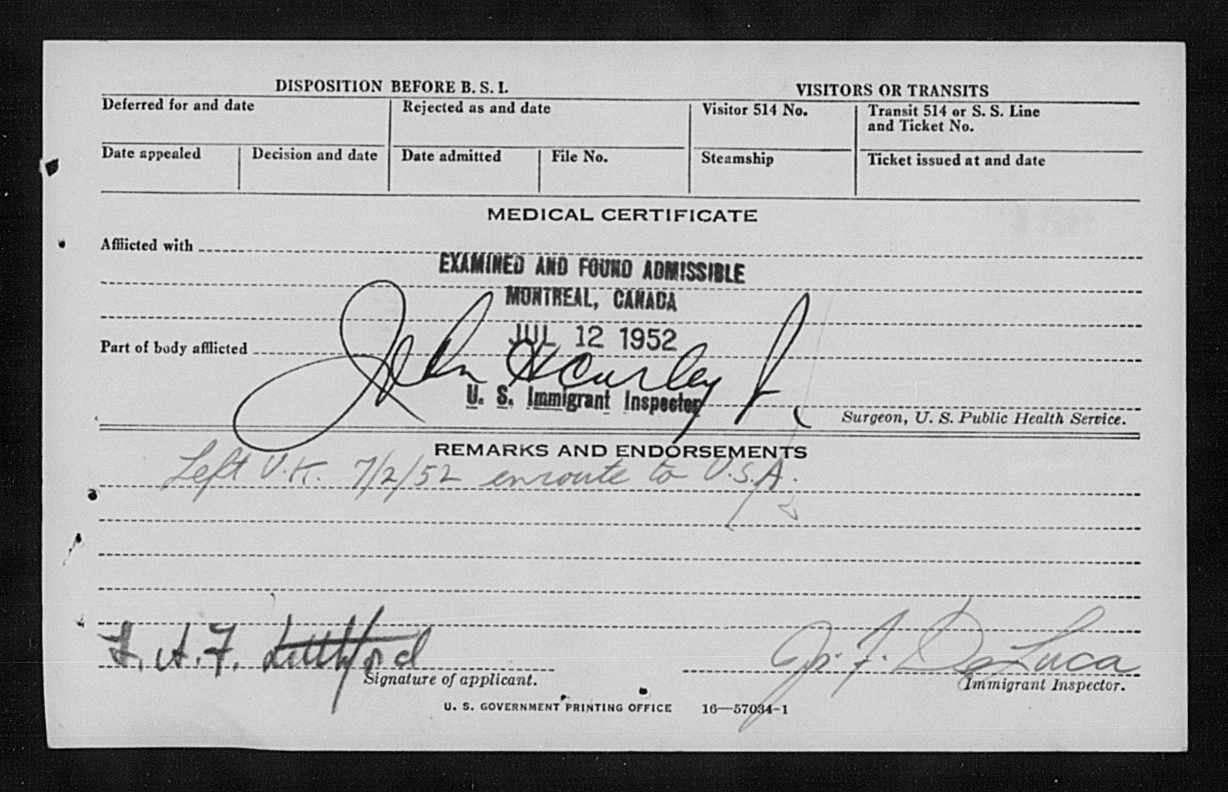 DISPOSITION BEFORE B. S. I.
VISITORS OR TRANSITS
Deferred for and date
Rejected as and date
Visitor 514 No.
Transit 514 or S. S. Line
and Ticket No.
Date appealed
Decision and date
Date admitted
File No.
Steamship
Ticket issued at and date
MEDICAL CERTIFICATE
Afflicted with
EXAMINED AND FOUND ADMISSIBLE
MONTREAL, CANADA
JUL 12 1952
Part of body afflicted
John H Curley Jr.
U. S. Immigrant Inspector
Surgeon, U. S. Public Health Service.
REMARKS AND ENDORSEMENTS
Left U.K. 7/2/52 enroute to U.S.A.
A. F.
De Luca
Signature of applicant.
Immigrant Inspector.
U. S. GOVERNMENT PRINTING OFFICE 16—57034-1